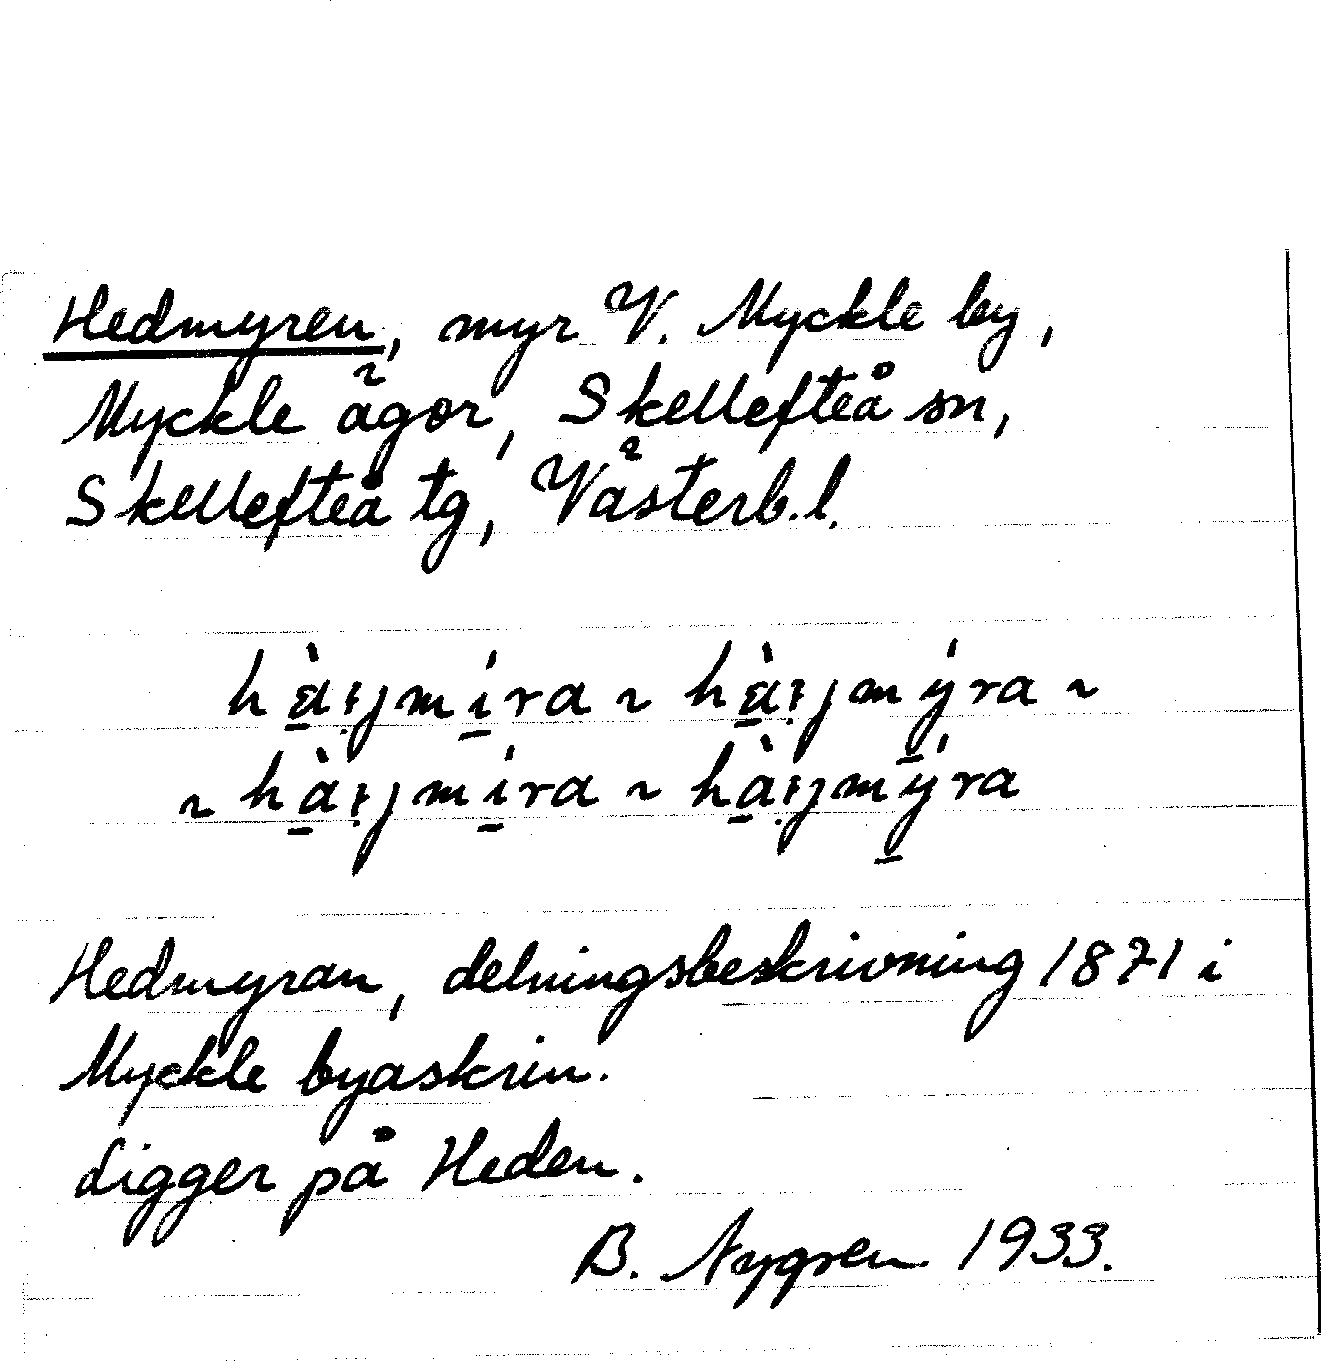 Hedmyren, myr V. Myckle by,
Myckle ägor, Skellefteå sn,
Skellefteå tg, Västerb. l.
Hedmyran, delningsbeskrivning 1871 i
Myckle byaskrin.
Ligger på Heden.
B. Nygren 1933.